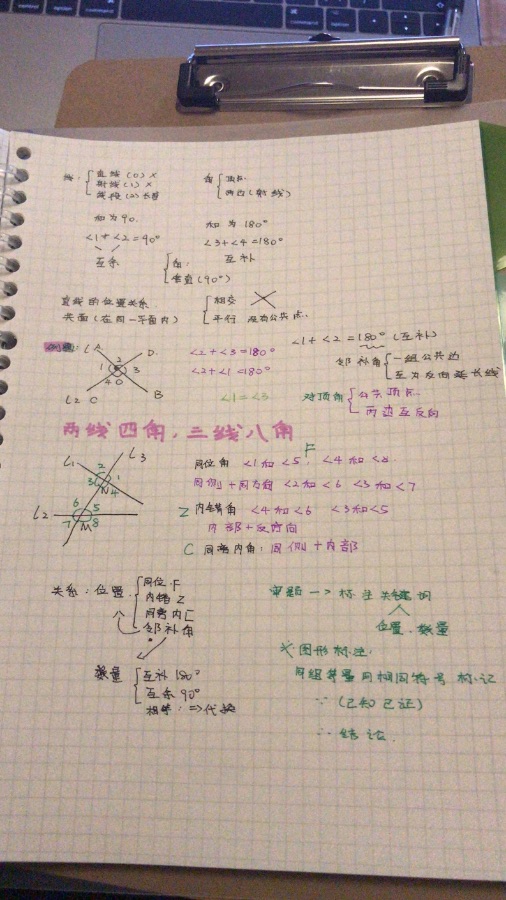 线: 直线 (0) ×
射线 (1) ×
线段 (2) 长度
角 顶点
两边 (射线)
和为90.
<1+<2=90°
互余
和为180°
<3+<4=180°
互补
垂直(90°)
直线的位置关系.
共面 (在同一平面内)
相交
平行 没有公共点.
<1+<2=180° (互补)
邻补角 一组公共边
互为反向延长线
L A D.
1 2 3 4 O
L2 C B
<2+<3=180°
<2+<1=180°
<1=<3
对顶角 公共顶点
两边互反向
两线四角, 三线八角
L1 L3
2 1 3 N 4
L2 6 5 7 M 8
F
同位角 <1和<5, <4和<8
同侧+同方向 <2和<6 <3和<7
Z 内错角 <4和<6 <3和<5
内部+反方向
C 同旁内角: 同侧+内部
关系: 位置 同位 F
内错 Z
同旁内 C
邻补角
数量 互补180°
互余90°
相等: => 代换
审题 —> 标注关键词
位置. 数量
图形标注:
同组等量用相同符号标记
∵ (已知已证)
∴ 结论.